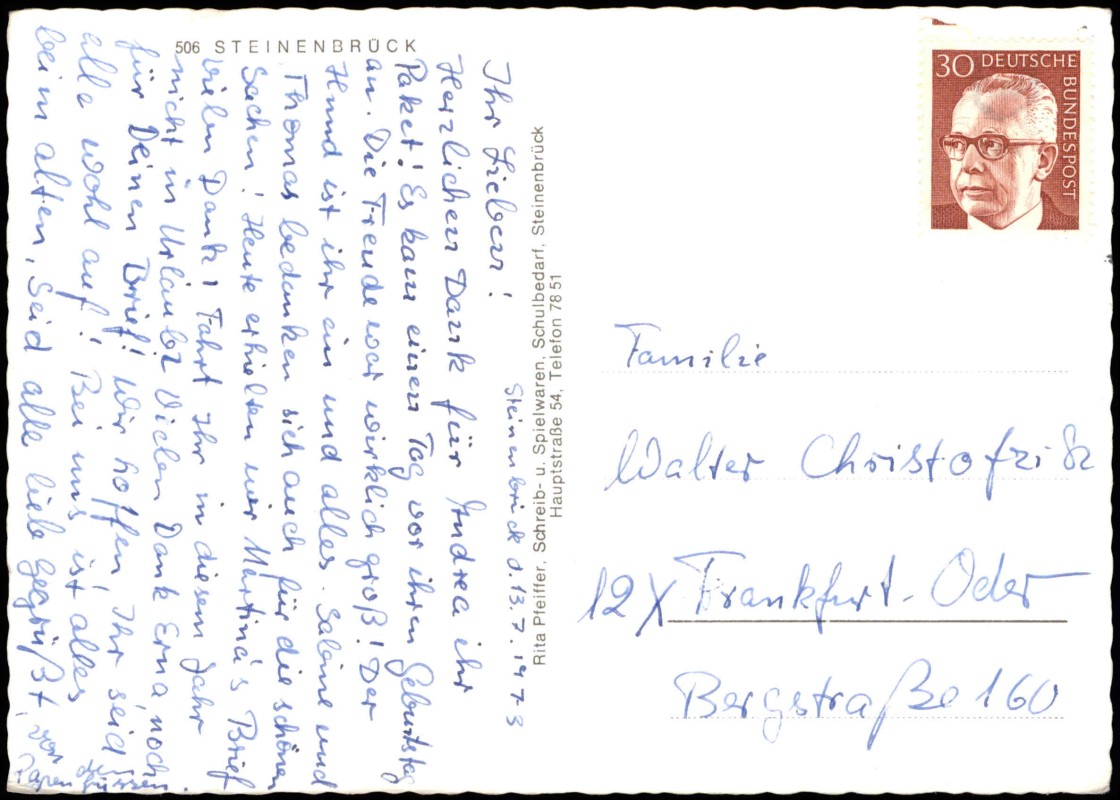 506 STEINENBRÜCK
Steinenbrück d. 13.7.1973
Ihr Lieben!
Herzlichen Dank für Andrea ihr
Paket! Es kam einen Tag vor ihren Geburtstag
an. Die Freude war wirklich groß! Der
Hund ist ihr ein und alles. Sabine und
Thomas bedanken sich auch für die schönen
Sachen! Heute erhielten wir Martina's Brief
vielen Dank! Fahrt Ihr in diesem Jahr
nicht in Urlaub? Vielen Dank Erna, noch
für Deinen Brief! Wir hoffen, Ihr seid
alle wohl auf! Bei uns ist alles
beim alten, Seid alle lieb gegrüßt, von
Rita Pfeiffer, Schreib- u. Spielwaren, Schulbedarf, Steinenbrück
Hauptstraße 54, Telefon 78 51
30 DEUTSCHE
BUNDESPOST
Familie
Walter Christofzik
12X Frankfurt-Oder
Bergstraße 160